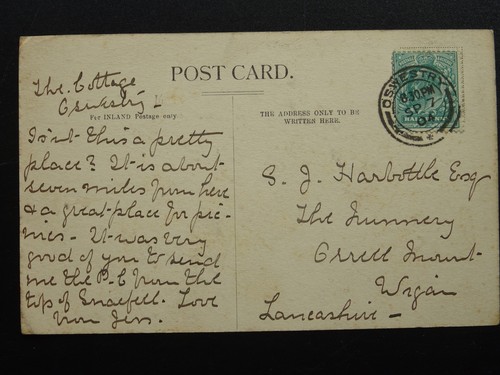 POST CARD.
The Cottage
Oswestry
For INLAND Postage only
THE ADDRESS ONLY TO BE
WRITTEN HERE.
Isn't this a pretty
place? It is about
seven miles from here
& a great place for pic-
nics - It was very
good of you to send
me the P-C from the
top of Snaefell. Love
from Jess.
S. J. Harbottle Esq
The Nunnery
Orrell Mount
Wigan
Lancashire -
OSWESTRY
6.30PM
SP 7
04
HALFPENNY